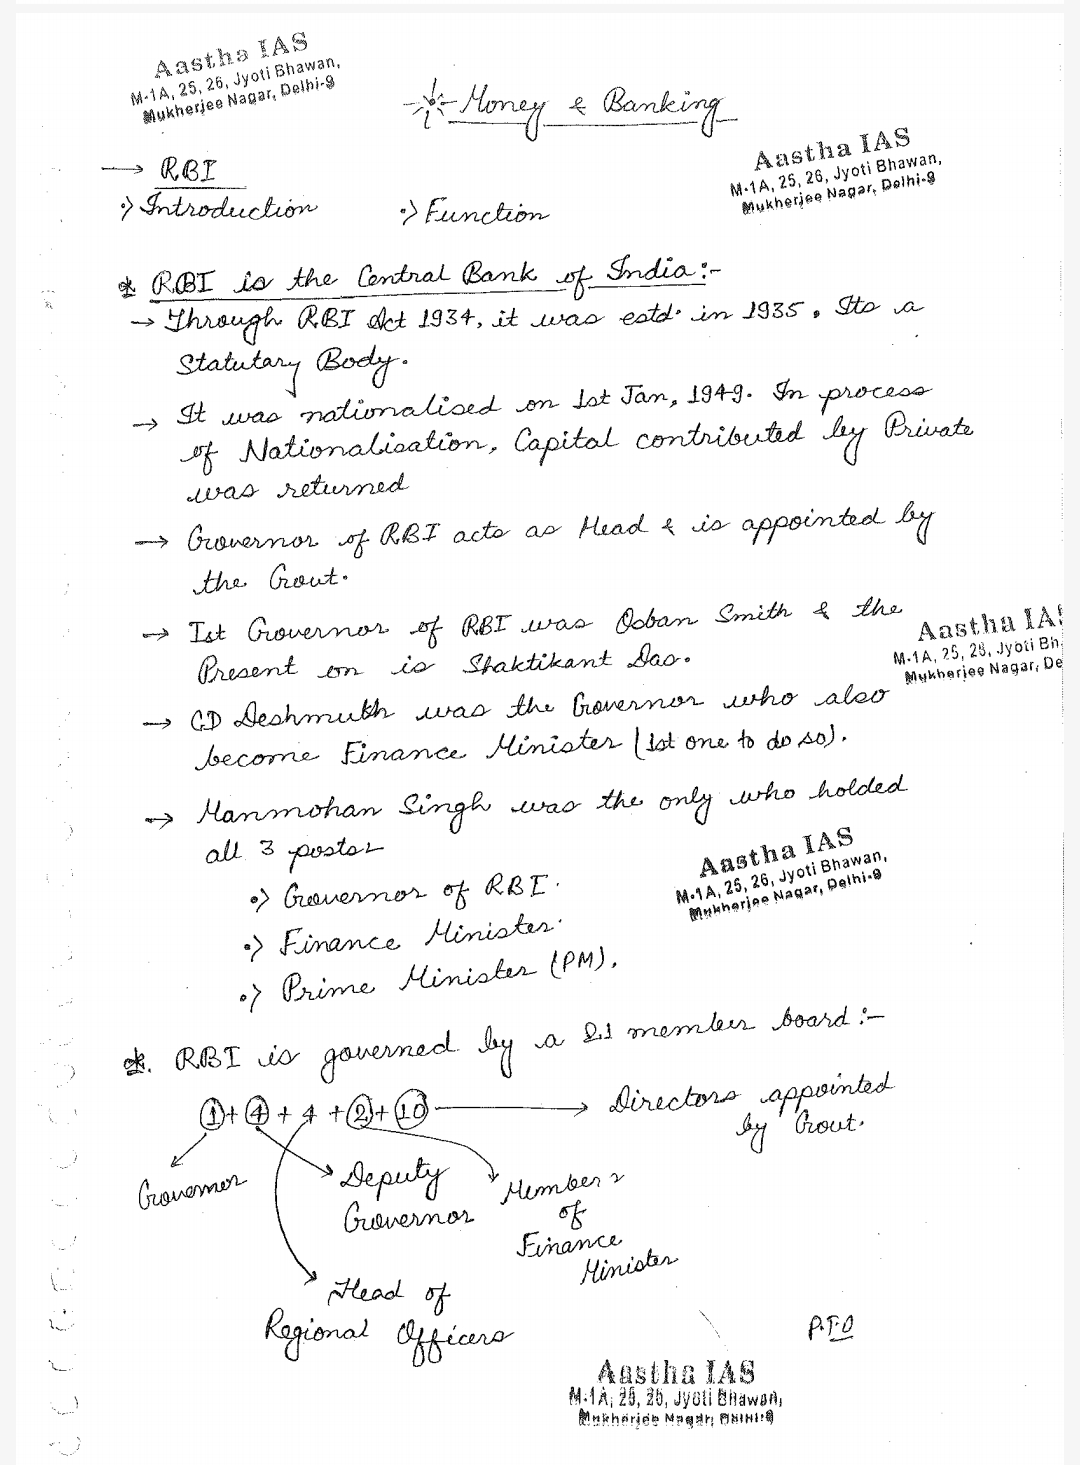 Aastha IAS
M-1A, 25, 26, Jyoti Bhawan,
Mukherjee Nagar, Delhi-9
Money & Banking
Aastha IAS
M-1A, 25, 26, Jyoti Bhawan,
Mukherjee Nagar, Delhi-9
→ RBI
•) Introduction •) Function
* RBI is the Central Bank of India:-
→ Through RBI Act 1934, it was estd. in 1935. Its a
Statutary Body.
→ It was nationalised on 1st Jan, 1949. In process
of Nationalisation, Capital contributed by Private
was returned
→ Governor of RBI acts as Head & is appointed by
the Govt.
→ Ist Governor of RBI was Osban Smith & the
Present on is Shaktikant Das.
Aastha IAS
M-1A, 25, 26, Jyoti Bh
Mukherjee Nagar, De
→ CD Deshmukh was the Governor who also
become Finance Minister (1st one to do so).
→ Manmohan Singh was the only who holded
all 3 postes
Aastha IAS
M-1A, 25, 26, Jyoti Bhawan,
Mukherjee Nagar, Delhi-9
•) Governor of RBI.
•) Finance Minister.
•) Prime Minister (PM).
*. RBI is governed by a 21 member board:-
1 + 4 + 4 + 2 + 10 → Directors appointed
by Govt.
Governer
Deputy
Governor
Members
of
Finance
Minister
Head of
Regional Officers
P.T.O
Aastha IAS
M-1A, 25, 26, Jyoti Bhawan,
Mukherjee Nagar, Delhi-9